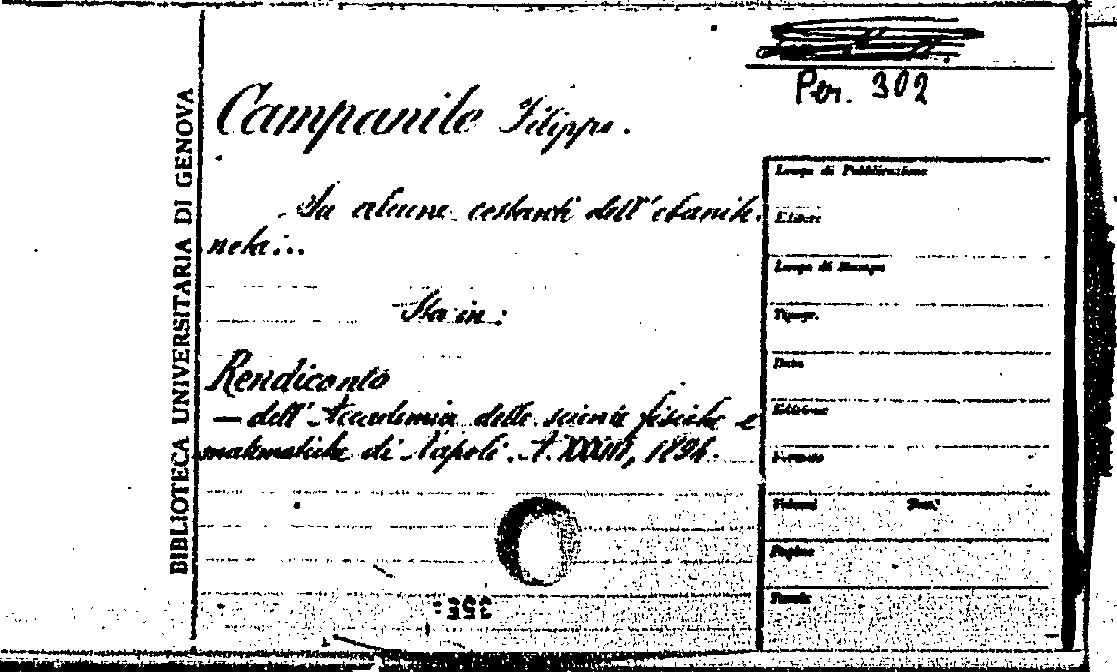 Per. 302
BIBLIOTECA UNIVERSITARIA DI GENOVA
Campanile Filippo.
Su alcune costanti dell'etanite.
neta...
Sta in:
Rendiconto
— dell'Accademia delle scienze fisiche e
matematiche di Napoli. A. XXXIII, 1894.
Luogo di Pubblicazione
Editore
Luogo di Stampa
Tipogr.
Data
Edizione
Formato
Volumi
Pagine
Tavole